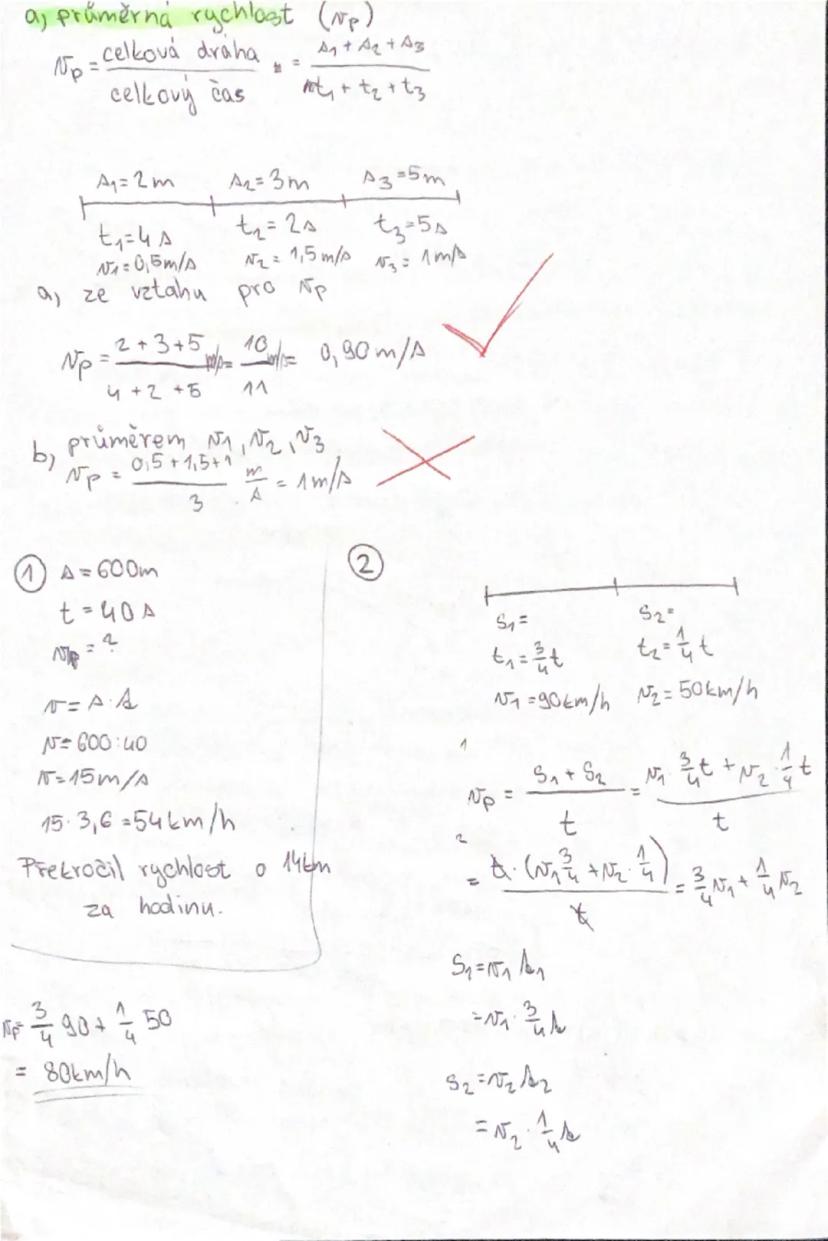 a) průměrná rychlost (vp)
vp = celková dráha / celkový čas = (s1 + s2 + s3) / (t1 + t2 + t3)
s1 = 2m s2 = 3m s3 = 5m
t1 = 4s t2 = 2s t3 = 5s
v1 = 0,5m/s v2 = 1,5m/s v3 = 1m/s
a) ze vztahu pro vp
vp = (2 + 3 + 5) / (4 + 2 + 5) m/s = 10/11 m/s = 0,90 m/s
b) průměrem v1, v2, v3
vp = (0,5 + 1,5 + 1) / 3 m/s = 1m/s
1 s = 600m
t = 40s
vp = ?
v = s :
v = 600 : 40
v = 15m/s
15 · 3,6 = 54km/h
Překročil rychlost o 14km
za hodinu.
vp = 3/4 90 + 1/4 50
= 80km/h
2
s1 = s2 =
t1 = 3/4 t t2 = 1/4 t
v1 = 90km/h v2 = 50km/h
1
vp = (s1 + s2) / t = (v1 · 3/4 t + v2 · 1/4 t) / t
2
= t · (v1 3/4 + v2 · 1/4) / t = 3/4 v1 + 1/4 v2
s1 = v1 t1
= v1 · 3/4 t
s2 = v2 t2
= v2 · 1/4 t